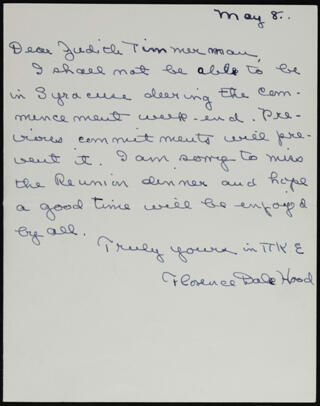 May 8.
Dear Judith Timmerman,
I shall not be able to be
in Syracuse during the Com-
mencement week-end. Pre-
vious commitments will pre-
vent it. I am sorry to miss
the Reunion dinner and hope
a good time will be enjoyed
by all.
Truly yours in ΠΚΣ
Florence Dale Hood